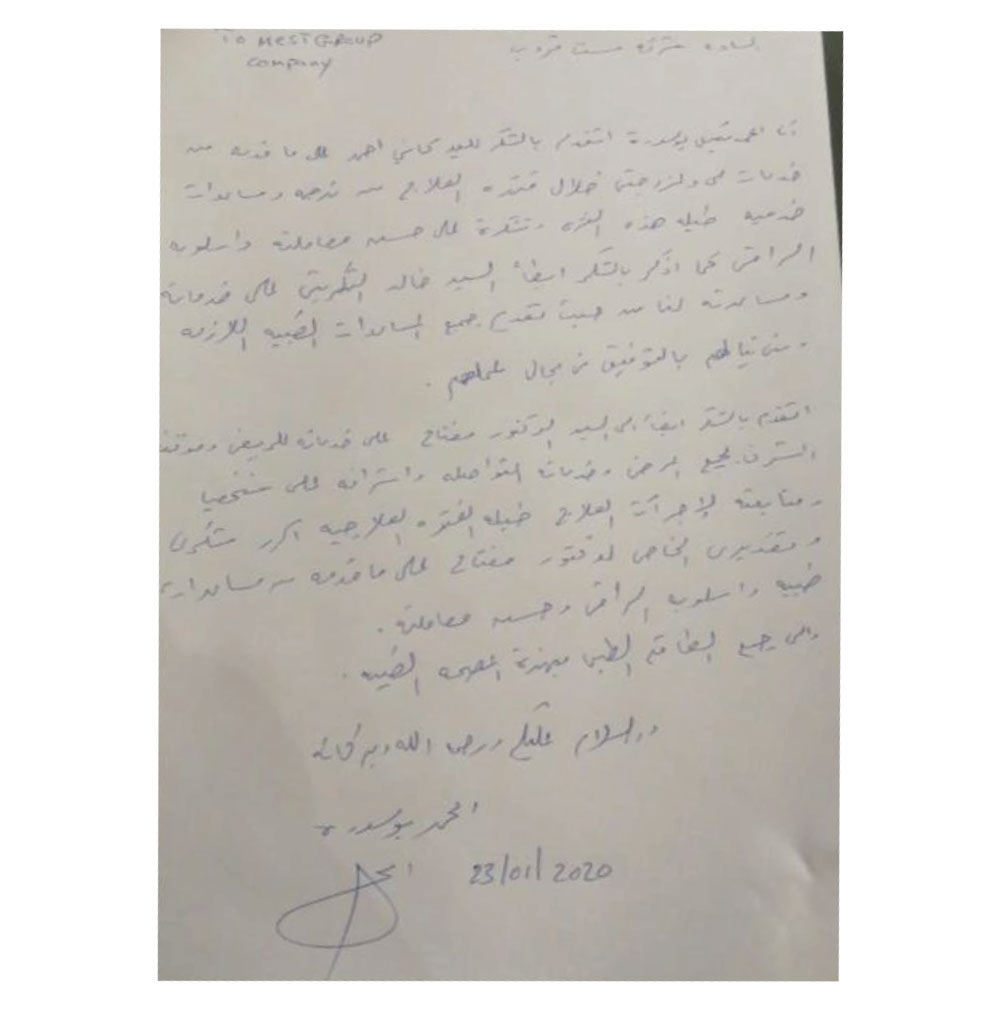 To MEST GROUP
Company
السادة شركة مست قروب
أنا احمد بوسدرة اتقدم بالشكر للسيد هاني احمد على ما قدمه من
خدمات لى ولزوجتى خلال فتره العلاج من ترجمه ومساعدات
خدميه طيله هذه الفتره ونشكرة على حسن معاملته واسلوبه
الراقى كما اذكر بالشكر ايضاً السيد خالد التكريتي على خدماته
ومساعدته لنا من حيث تقديم جميع المساعدات الطبيه اللازمه
بالتوفيق فى مجال عملهم .
اتقدم بالشكر ايضاً الى السيد الدكتور مفتاح على خدماته للمريض
لجميع المرضى وخدماته المتواصله واشرافه على شخصيا
ومتابعته لإجرآت العلاج طيله الفتره العلاجيه اكرر شكرى
وتقديرى الخاص لدكتور مفتاح على ما قدمه من مساعدات
طبيه واسلوبه الراقى وحسن معاملته .
والى جميع الطاقم الطبى بهذة المصحه الطبيه .
والسلام عليكم ورحمة الله وبركاته
احمد بوسدرة
23/01/2020